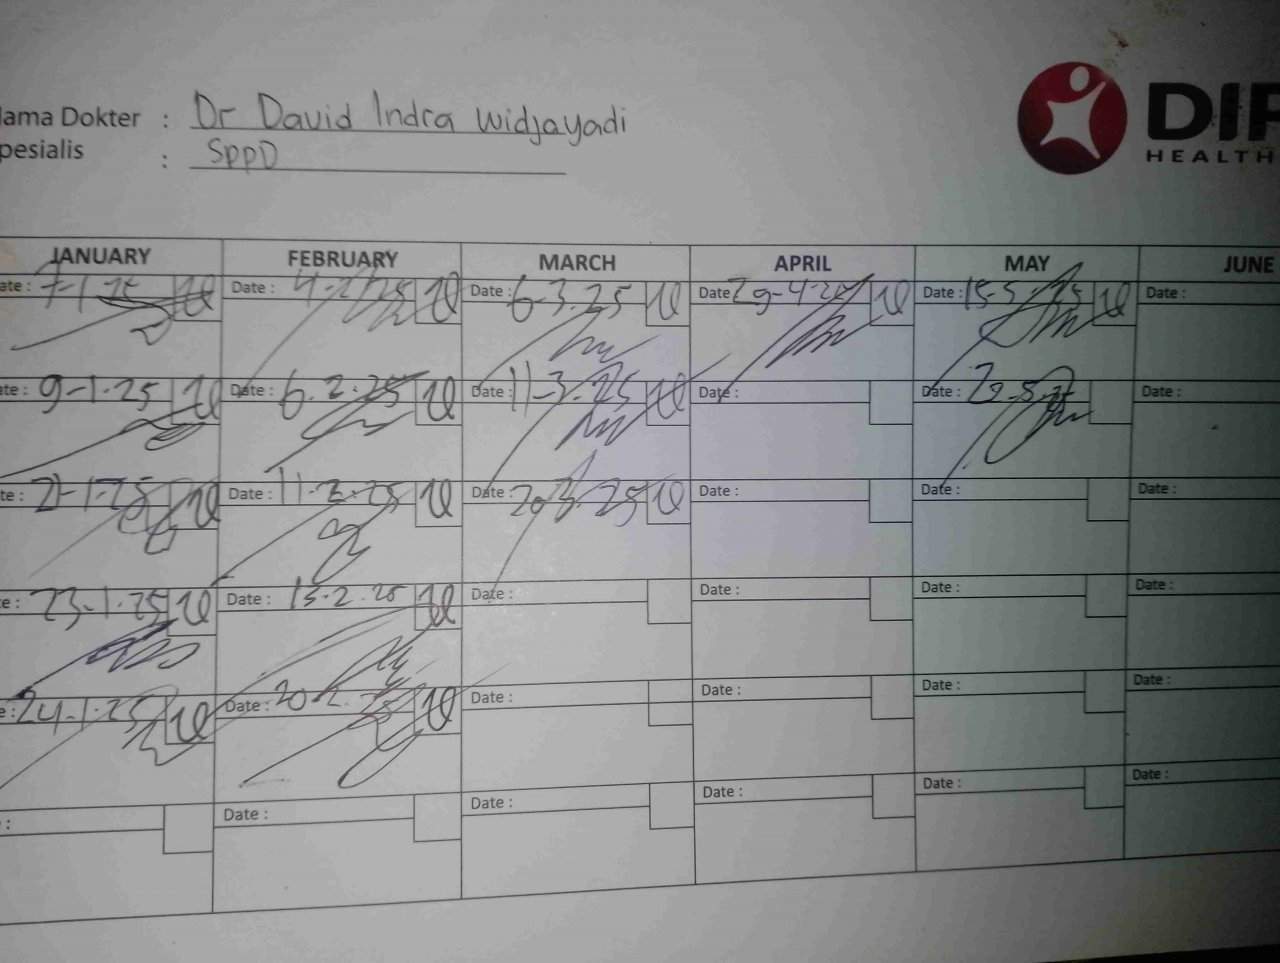 ama Dokter : Dr David Indra Widjayadi
pesialis : SppD
DIP
HEALTH
JANUARY FEBRUARY MARCH APRIL MAY JUNE
ate : 7-1-25 Date : 4-2-25 Date : 6-3.25 Date 29-4-25 Date : 15-5-25 Date :
ate : 9-1-25 Date : 6.2.25 Date : 11-3-25 Date : Date : Date :
te : 21-1-25 Date : 11-2-25 Date : 20-3-25 Date : Date : Date :
e : 23-1-25 Date : 13-2-25 Date : Date : Date : Date :
e : 24-1-25 Date : 20-2-25 Date : Date : Date : Date :
: Date : Date : Date : Date : Date :